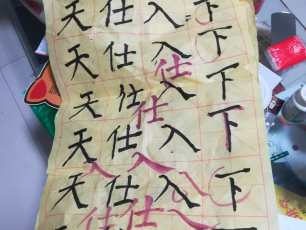 天仕入下
天仕入下
仕
天仕入下
仕
天仕入下
入入
天仕入下
仕仕入